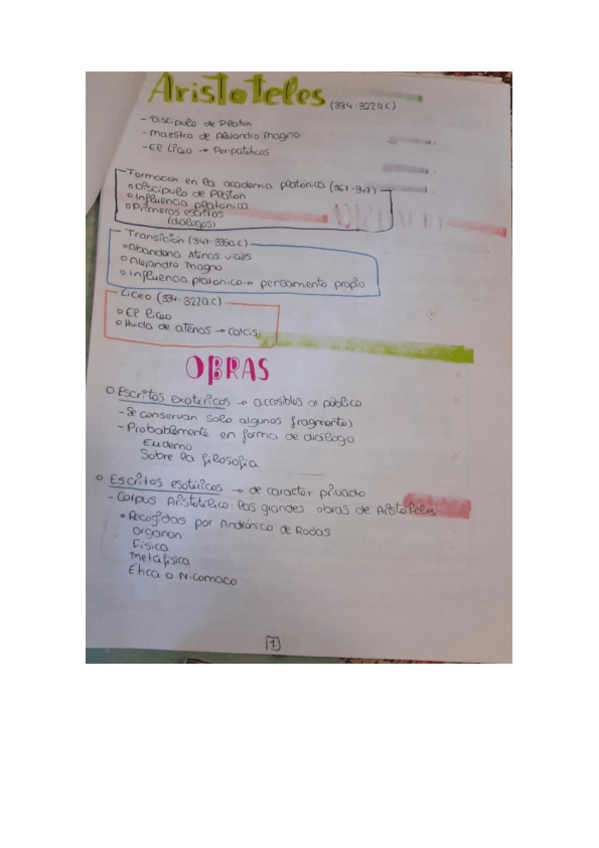 Aristoteles (384-322a.c)
- Discipulo de Platón
- Maestro de Alejandro Magno
- El Liceo → Peripatéticos
Formación en la academia platónica (367-347)
Discípulo de Platón
Influencia platónica
Primeros escritos
(dialogos)
Transición (347-335a.c)
Abandona Atenas viajes
Alejandro Magno
Influencia platonico → pensamento propio
Liceo (334-322a.c)
El liceo
Huida de atenas → Calcis
OBRAS
Escritos exotericos → accesibles al público
- Se conservan solo algunos fragmentos
- Probablemente en forma de diálogo
Eudemo
Sobre la filosofia
Escritos esotéricos → de caracter privado
- Corpus Aristotélico: las grandes obras de Aristoteles
Recogidas por Andrónico de Rodas
Organon
Física
Metafísica
Ética a Nicomaco
1